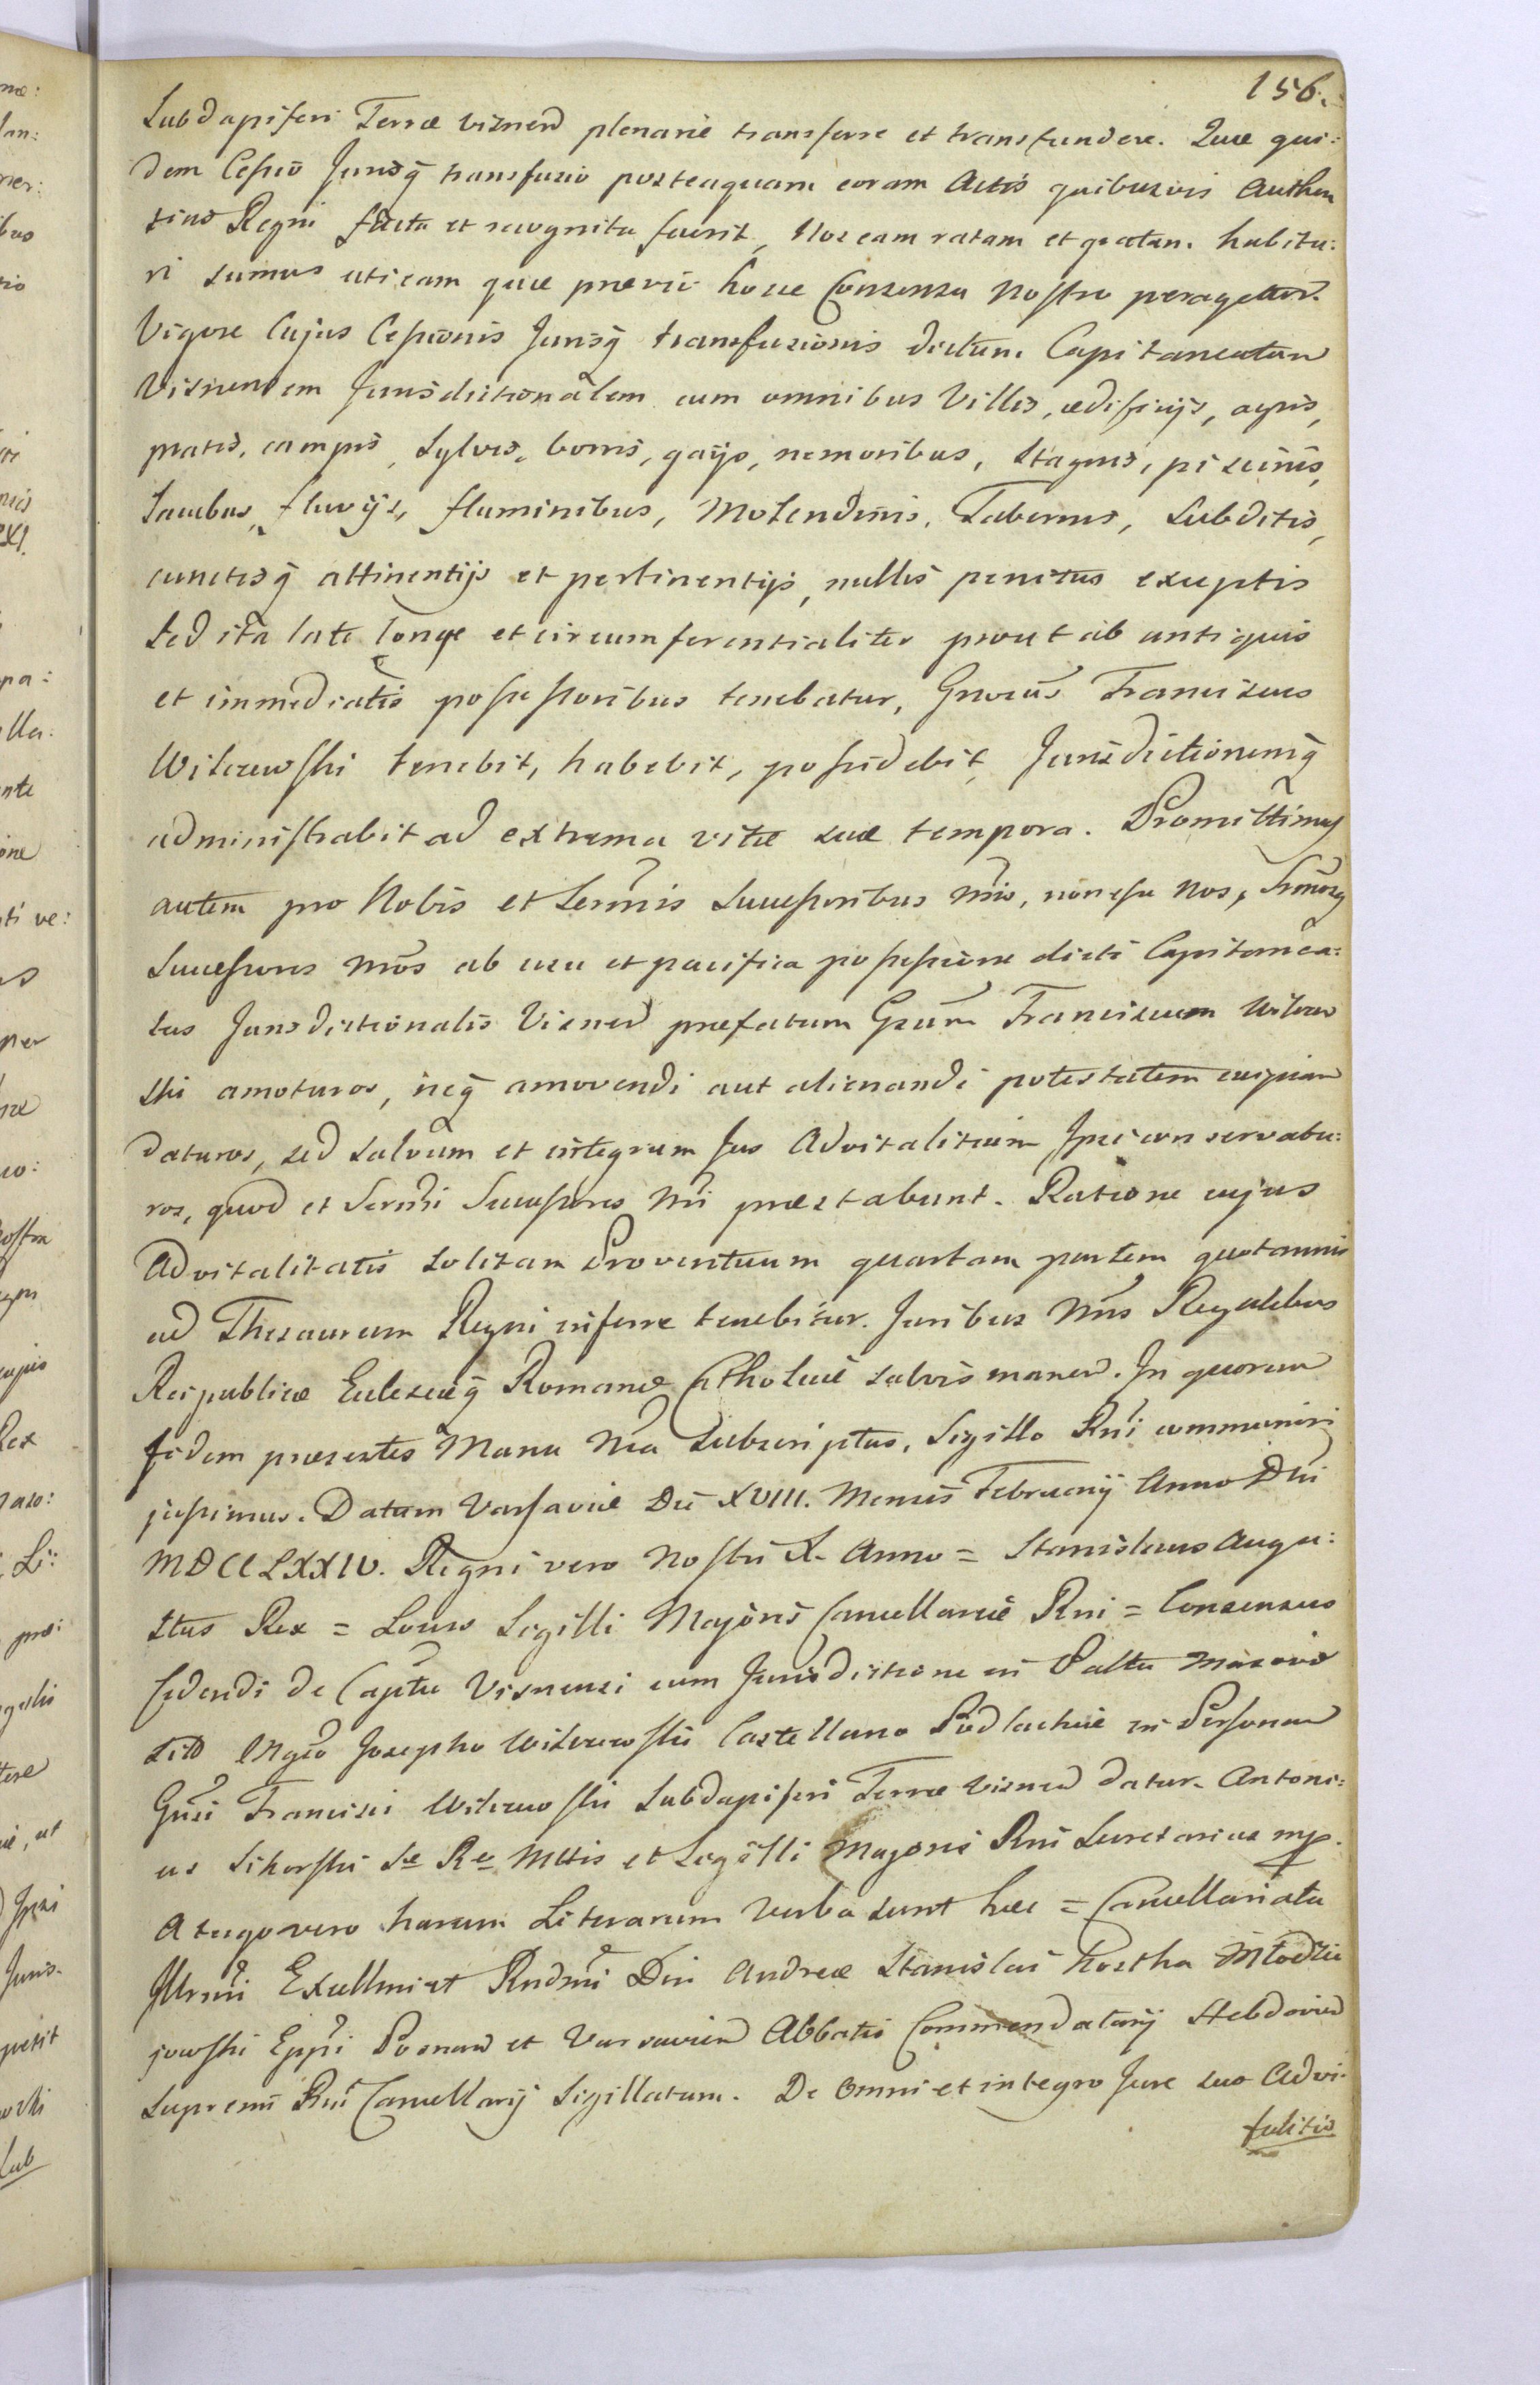 156.
Subdapiferi Terræ Visnen plenarie transferre et transfundere. Quæ qui:
dem Cessio Jurisq transfusio posteaquam coram Actis quibusvis Authen
ticis Regni facta et recognita fuerit, Nos eam ratam et gratam habitu:
ri sumus uti eam quæ prævio hocce Consensu Nostro peragetur.
Vigore Cujus Cessionis Jurisq transfusionis dictum Capitaneatum
Visnensem Jurisdictionalem cum omnibus Villis, ædificijs, agris,
pratis, campis, Sylvis, borris, gaijs, nemoribus, Stagnis, piscinis,
Lacubus, fluvijs, fluminibus, Molendinis, Tabernis, Subditis,
cunctisq attinentijs et pertinentijs, nullis penitus exceptis
Sed ita late longe et circumferentialiter prout ab antiquis
et immediatis possessoribus tenebatur, Gnosus Franciscus
Wilczewski tenebit, habebit, possidebit, Jurisdictionemq
administrabit ad extrema vitæ suæ tempora. Promittimus
autem pro Nobis et Sermis Successoribus Nris, non esse Nos, Srmosq
Successores Nros ab usu et pacifica possessione dicti Capitanea:
tus Jurisdictionalis Visnen præfatum Gsum Franciscum Wilczew
ski amoturos, neq amovendi aut alienandi potestatem cuipiam
daturos, sed salvum et integrum Jus Advitalitium Ipsi conservatu:
ros, quod et Sermi Successores Nri præstabunt. Ratione cujus
Advitalitatis solitam Proventuum quartam partem quotannis
ad Thesaurum Regni inferre tenebitur. Juribus Nris Regalibus
Reipublicæ Ecclesiæq Romanæ Catholicæ salvis manen. In quorum
fidem præsentes Manu Nra Subscriptas, Sigillo Rni communiri
jussimus. Datum Varsaviæ Die XVIII. Mensis Februarij Anno Dni
MDCCLXXIV. Regni vero Nostri X. Anno = Stanislaus Augu:
stus Rex = Locus Sigilli Majoris Cancellariæ Rni = Consensus
Cedendi de Captu Visnensi cum Jurisdictione in Pallu Masoviæ
sito Mgco Josepho Wilczewski Castellano Podlachiæ in Personam
Gnsi Francisci Wilczewski Subdapiferi Terræ Visnen datur. Antoni:
us Sikorski Sæ Ræ Mttis et Sigilli Majoris Rni Secretarius mp.
A tergo vero harum Literarum Verba sunt hæc = Cancellariatu
Illrmi Excellmi et Rndmi Dni Andreæ Stanislai Kostka Młodzie
jowski Eppi Posnan et Varsavien Abbatis Commendatarij Hebdovien
Supremi Rni Cancellarij Sigillatum. De Omni et integro Jure suo Advi-
talitio